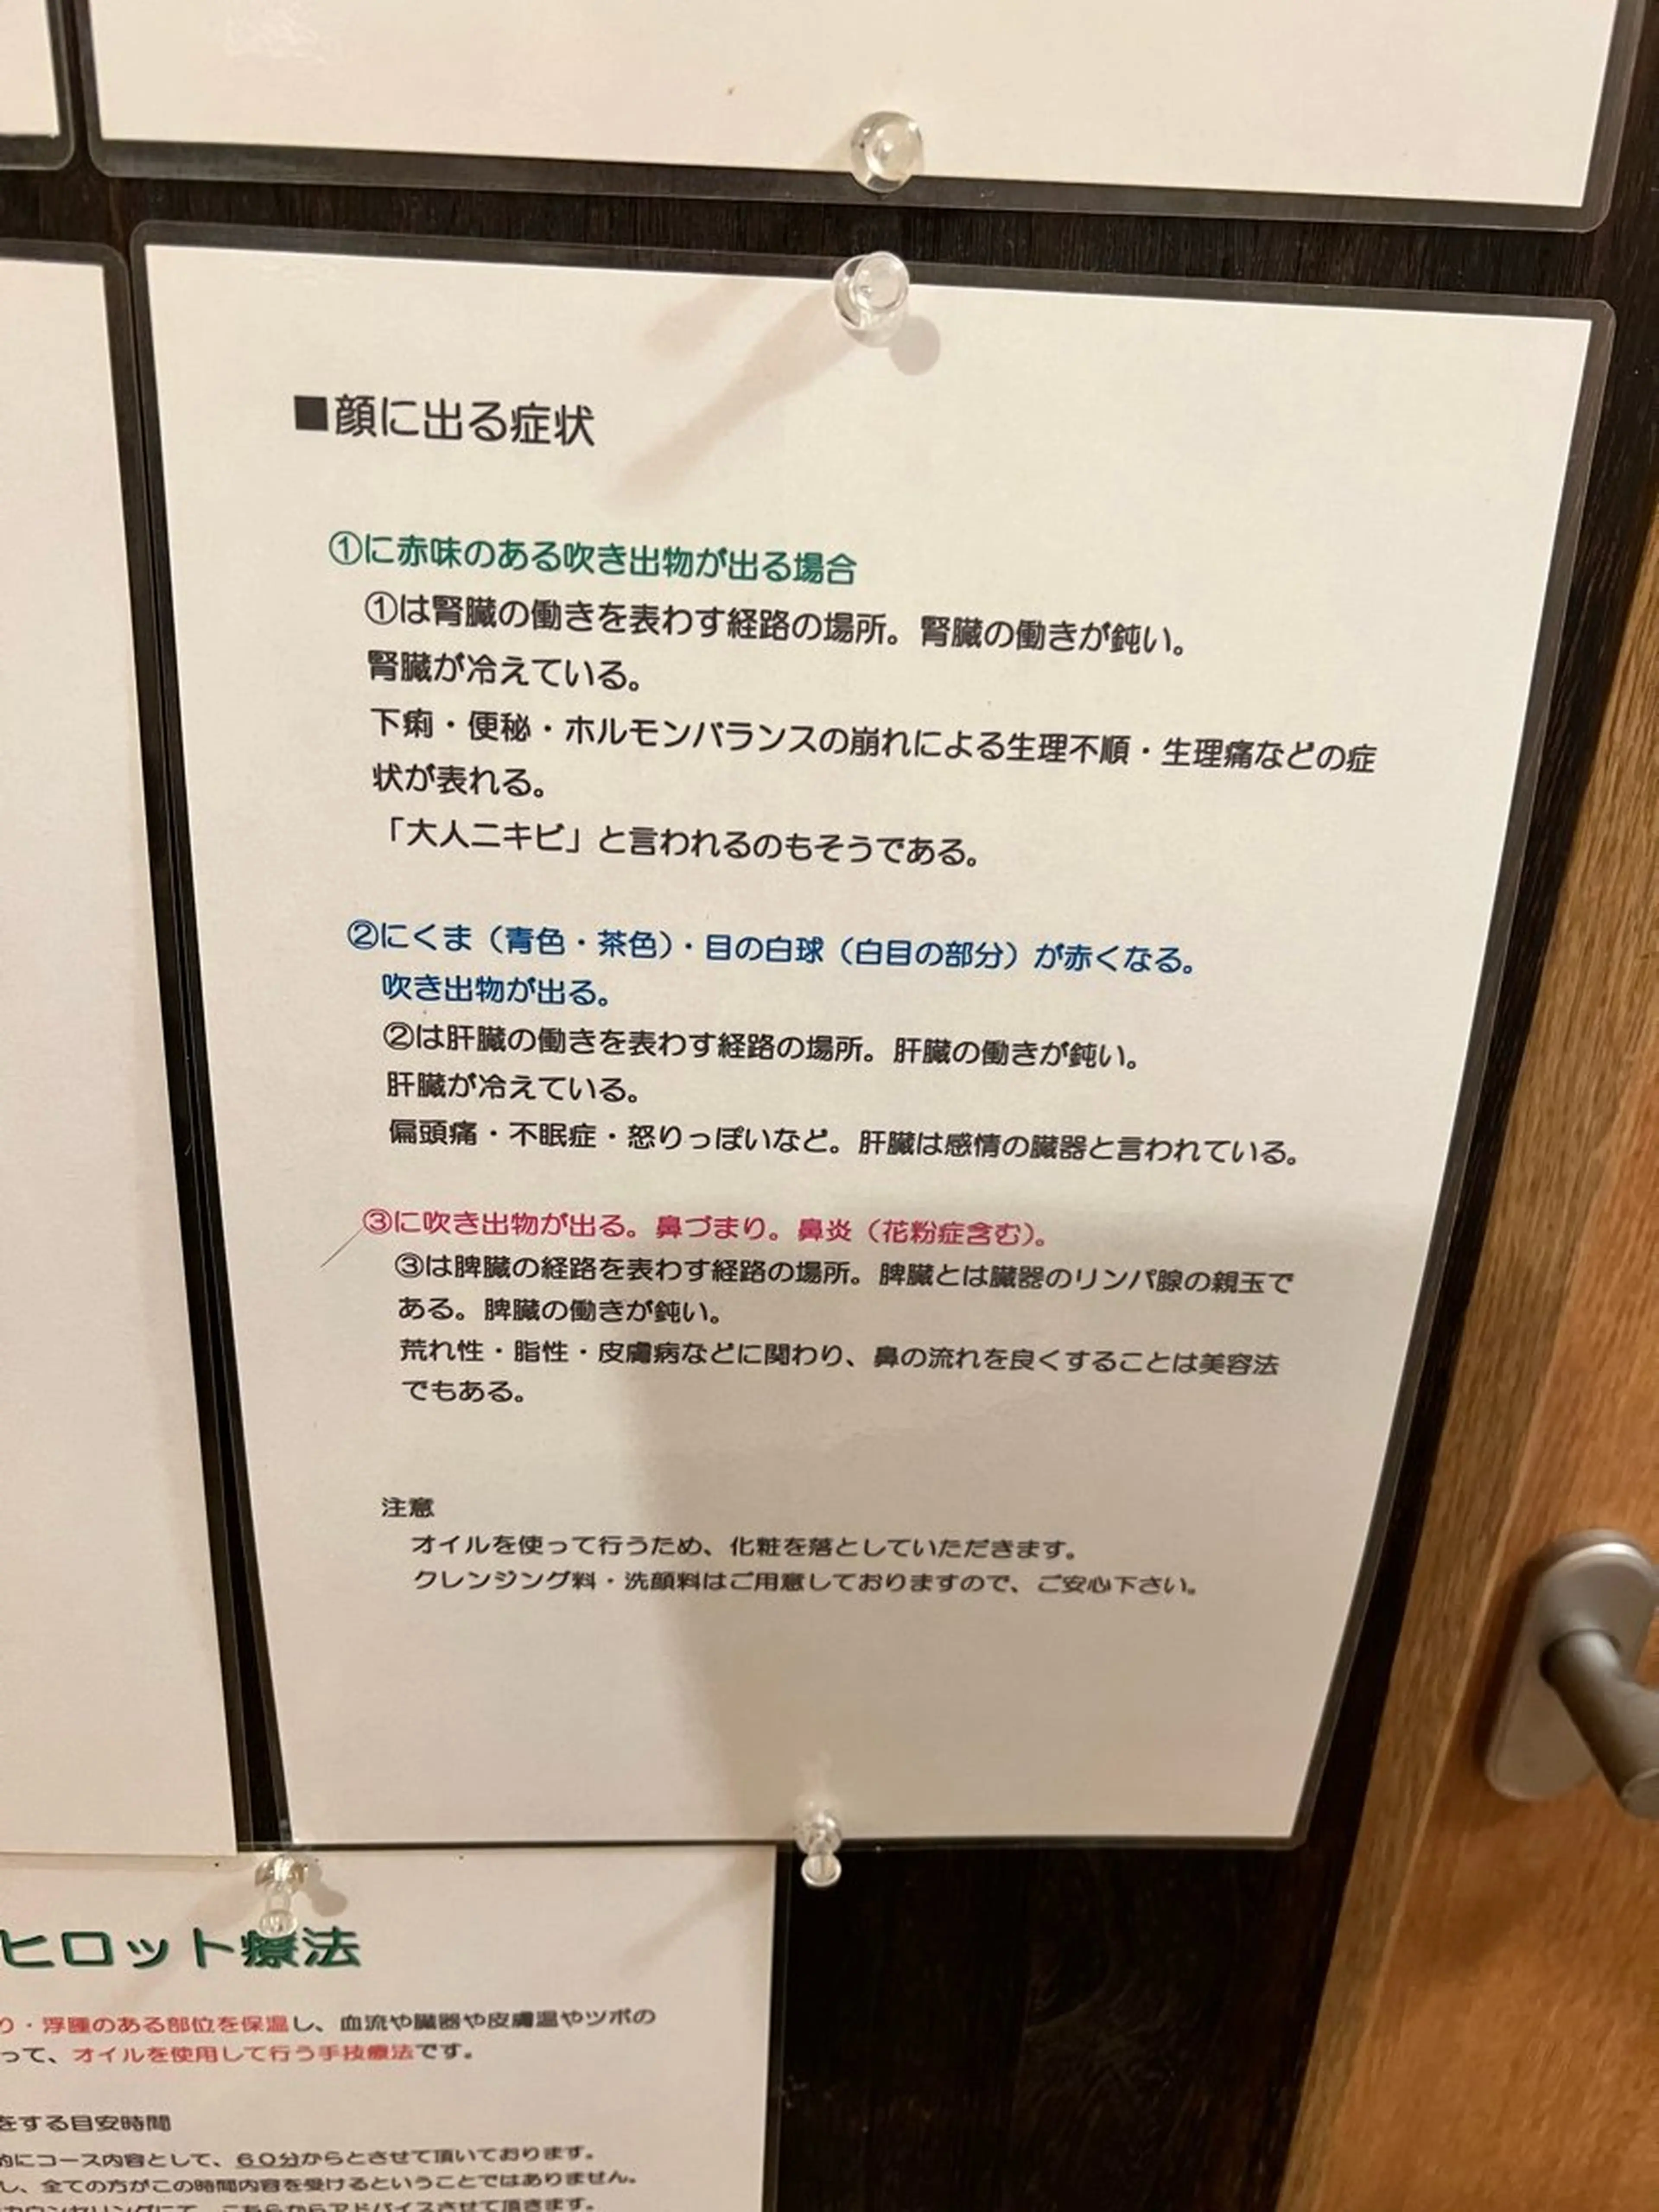 ■顔に出る症状
①に赤味のある吹き出物が出る場合
①は腎臓の働きを表わす経路の場所。腎臓の働きが鈍い。
腎臓が冷えている。
下痢・便秘・ホルモンバランスの崩れによる生理不順・生理痛などの症
状が表れる。
「大人ニキビ」と言われるのもそうである。
②にくま（青色・茶色）・目の白球（白目の部分）が赤くなる。
吹き出物が出る。
②は肝臓の働きを表わす経路の場所。肝臓の働きが鈍い。
肝臓が冷えている。
偏頭痛・不眠症・怒りっぽいなど。肝臓は感情の臓器と言われている。
③に吹き出物が出る。鼻づまり。鼻炎（花粉症含む）。
③は脾臓の経路を表わす経路の場所。脾臓とは臓器のリンパ腺の親玉で
ある。脾臓の働きが鈍い。
荒れ性・脂性・皮膚病などに関わり、鼻の流れを良くすることは美容法
でもある。
注意
オイルを使って行うため、化粧を落としていただきます。
クレンジング料・洗顔料はご用意しておりますので、ご安心下さい。
ヒロット療法
り・浮腫のある部位を保温し、血流や臓器や皮膚温やツボの
って、オイルを使用して行う手技療法です。
をする目安時間
的にコース内容として、６０分からとさせて頂いております。
し、全ての方がこの時間内容を受けるということではありません。
カウンセリングにて、こちらからアドバイスさせて頂きます。